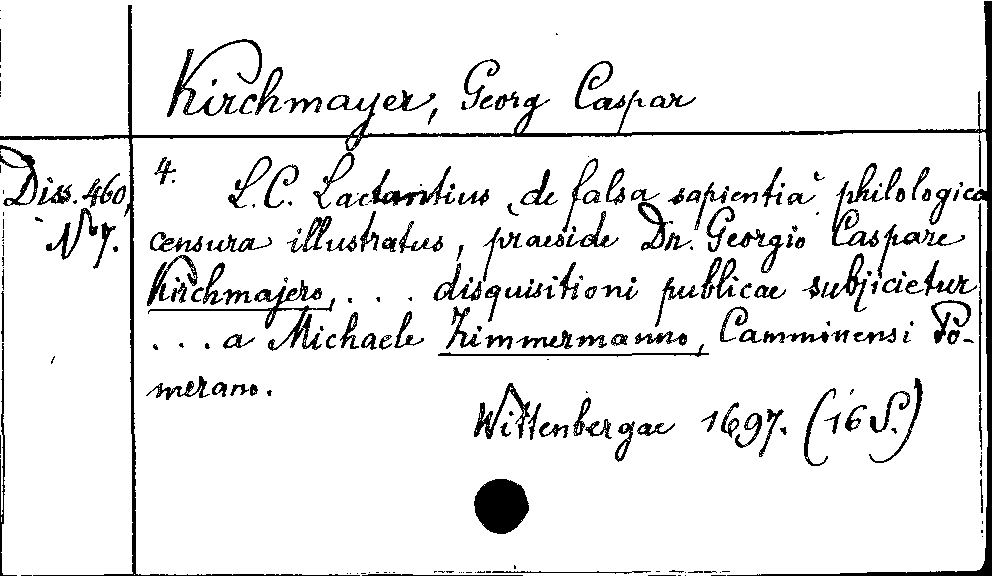 Kirchmayer, Georg Caspar
Diss. 460,
No 7.
4.
L. C. Lactantius de falsa sapientia philologica
censura illustratus, praeside Dn. Georgio Caspare
Kirchmajero, . . . disquisitioni publicae subjicietur
. . . a Michaele Zimmermanno, Camminensi Po-
merano.
Wittenbergae 1697. (16 S.)